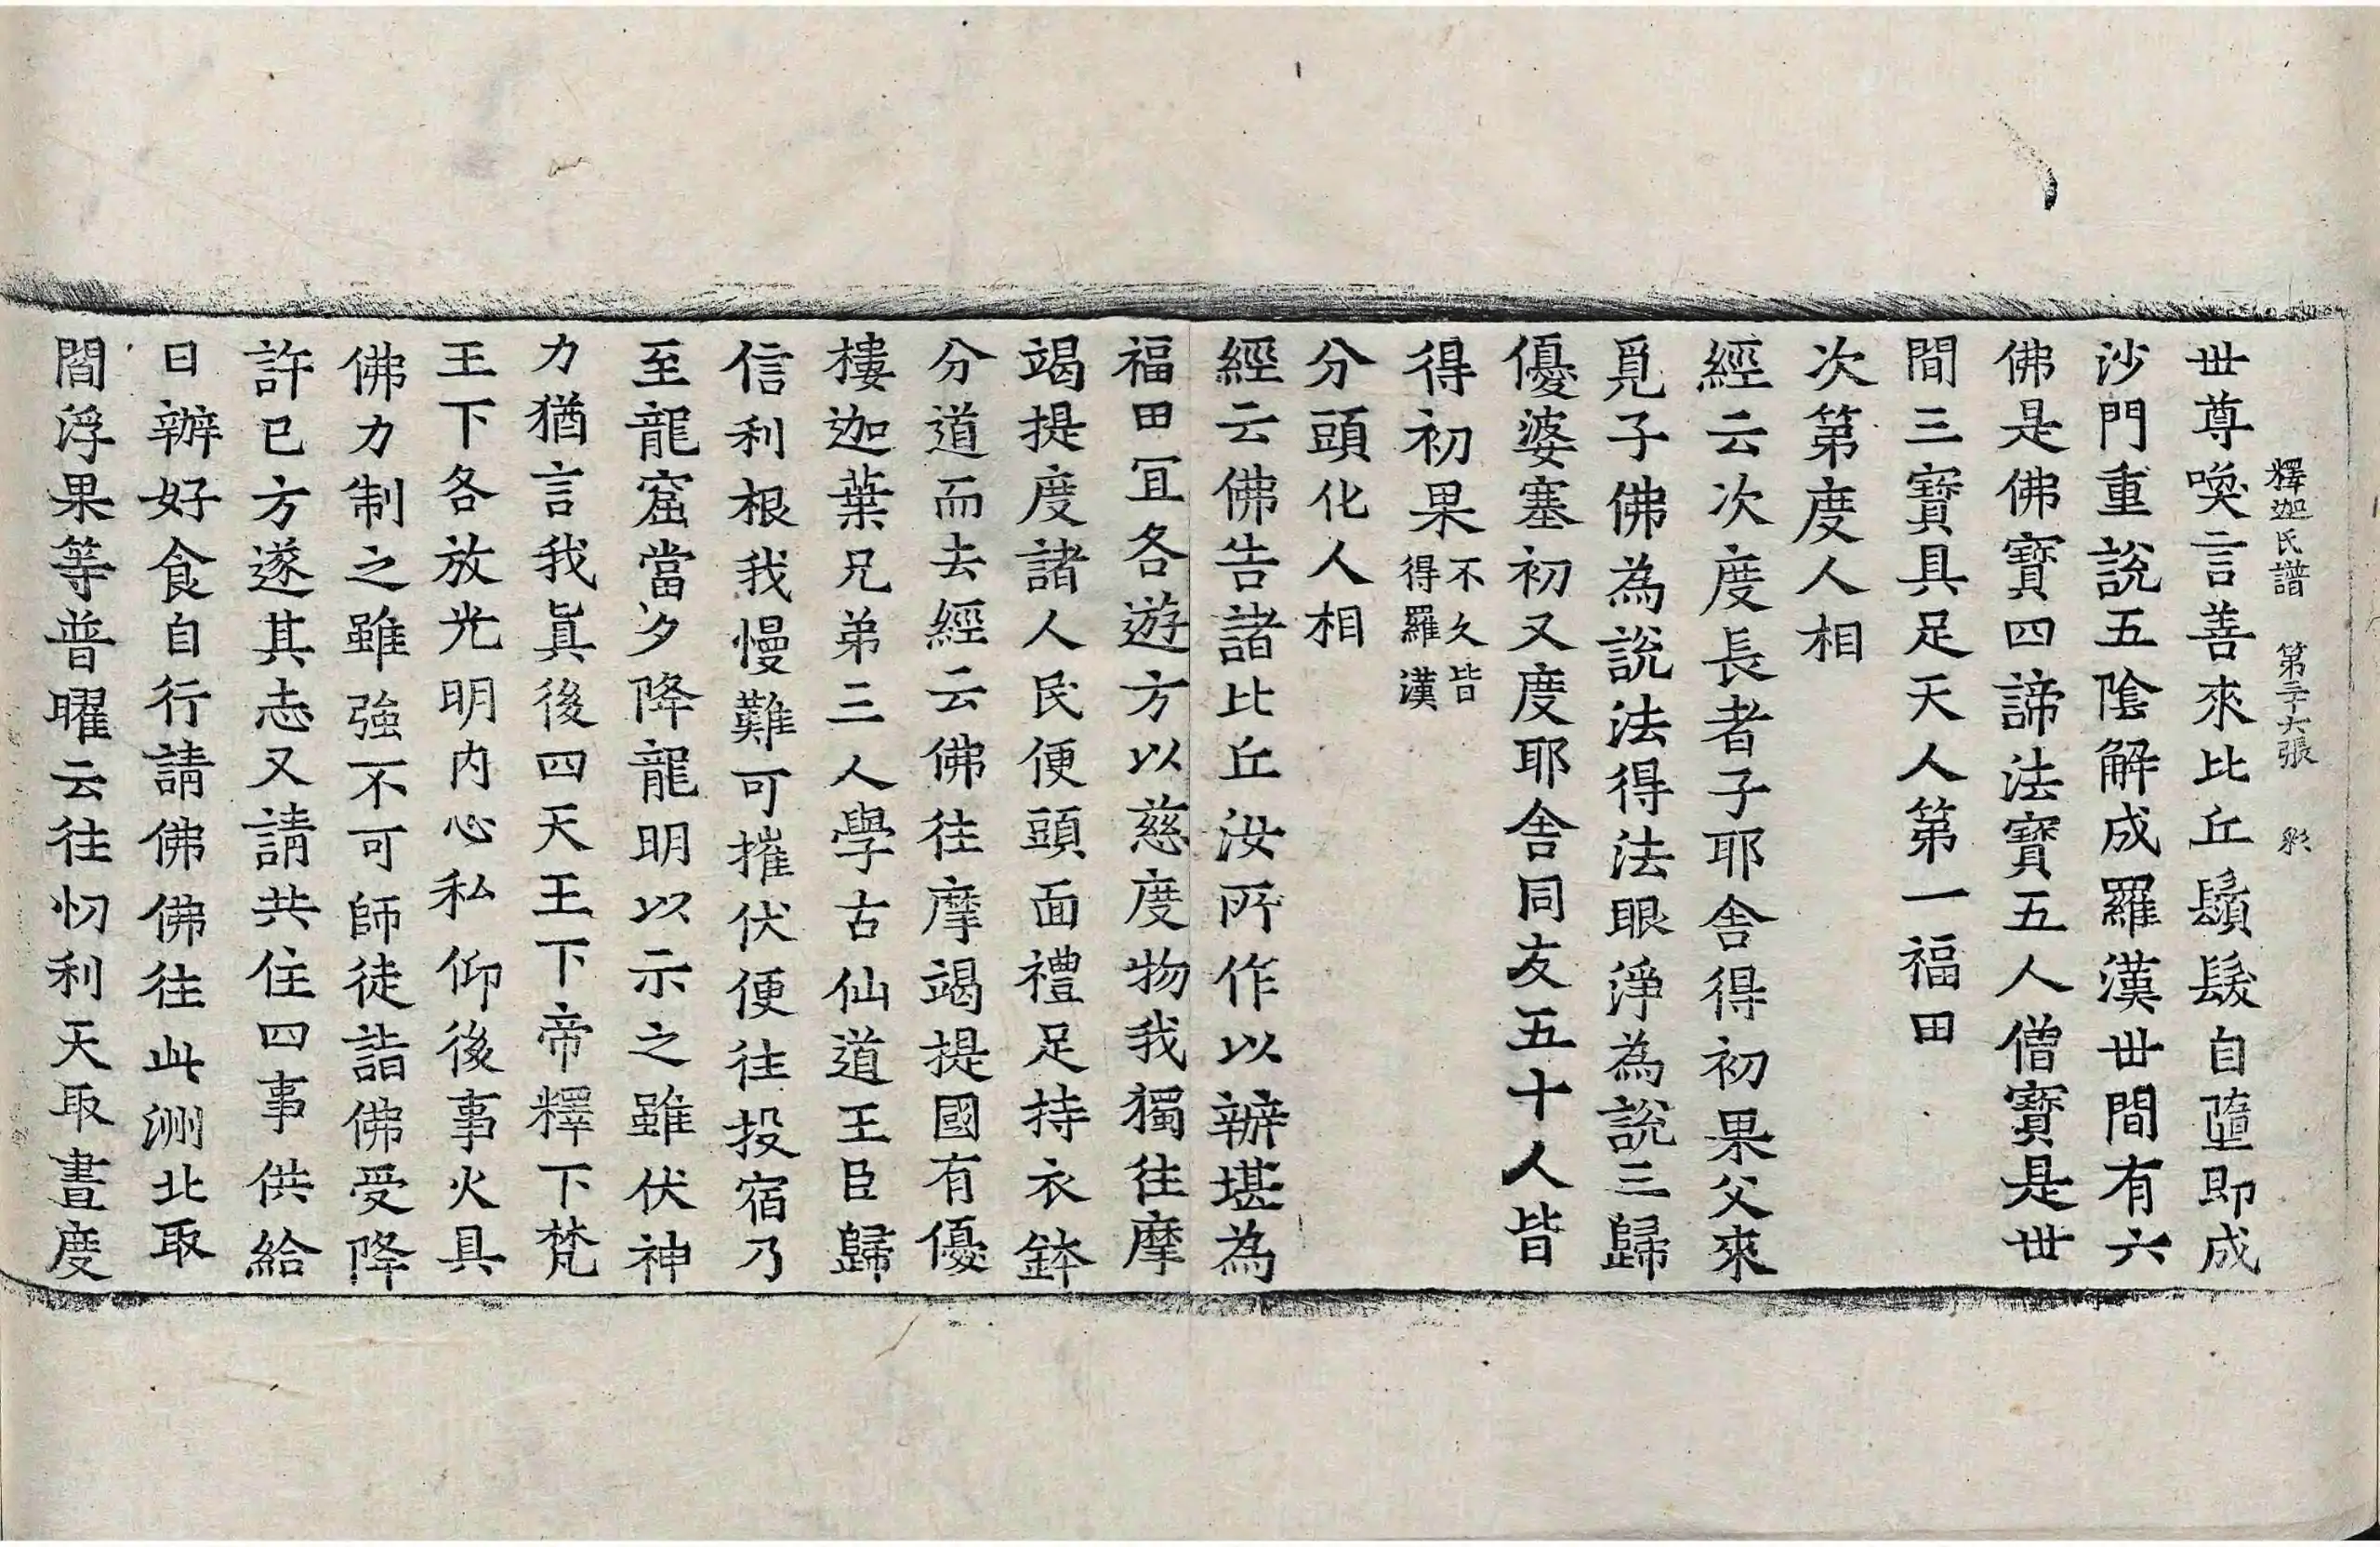 釋迦氏譜 第二十六張 彩
世尊喚言善來比丘鬚髮自墮即成
沙門重說五陰解成羅漢世間有六
佛是佛寶四諦法寶五人僧寶是世
間三寶具足天人第一福田
次第度人相
經云次度長者子耶舍得初果父來
覓子佛為說法得法眼淨為說三歸
優婆塞初又度耶舍同友五十人皆
得初果不久皆得羅漢
分頭化人相
經云佛告諸比丘汝所作以辦堪為
福田冝各遊方以慈度物我獨往摩
竭提度諸人民便頭面禮足持衣鉢
分道而去經云佛往摩竭提國有優
樓迦葉兄弟三人學古仙道王臣歸
信利根我慢難可摧伏便往投宿乃
至龍窟當夕降龍明以示之雖伏神
力猶言我真後四天王下帝釋下梵
王下各放光明內心私仰後事火具
佛力制之雖強不可師徒詣佛受降
許已方遂其志又請共住四事供給
日辦好食自行請佛佛往此洲北取
閻浮果等普曜云往忉利天取晝度